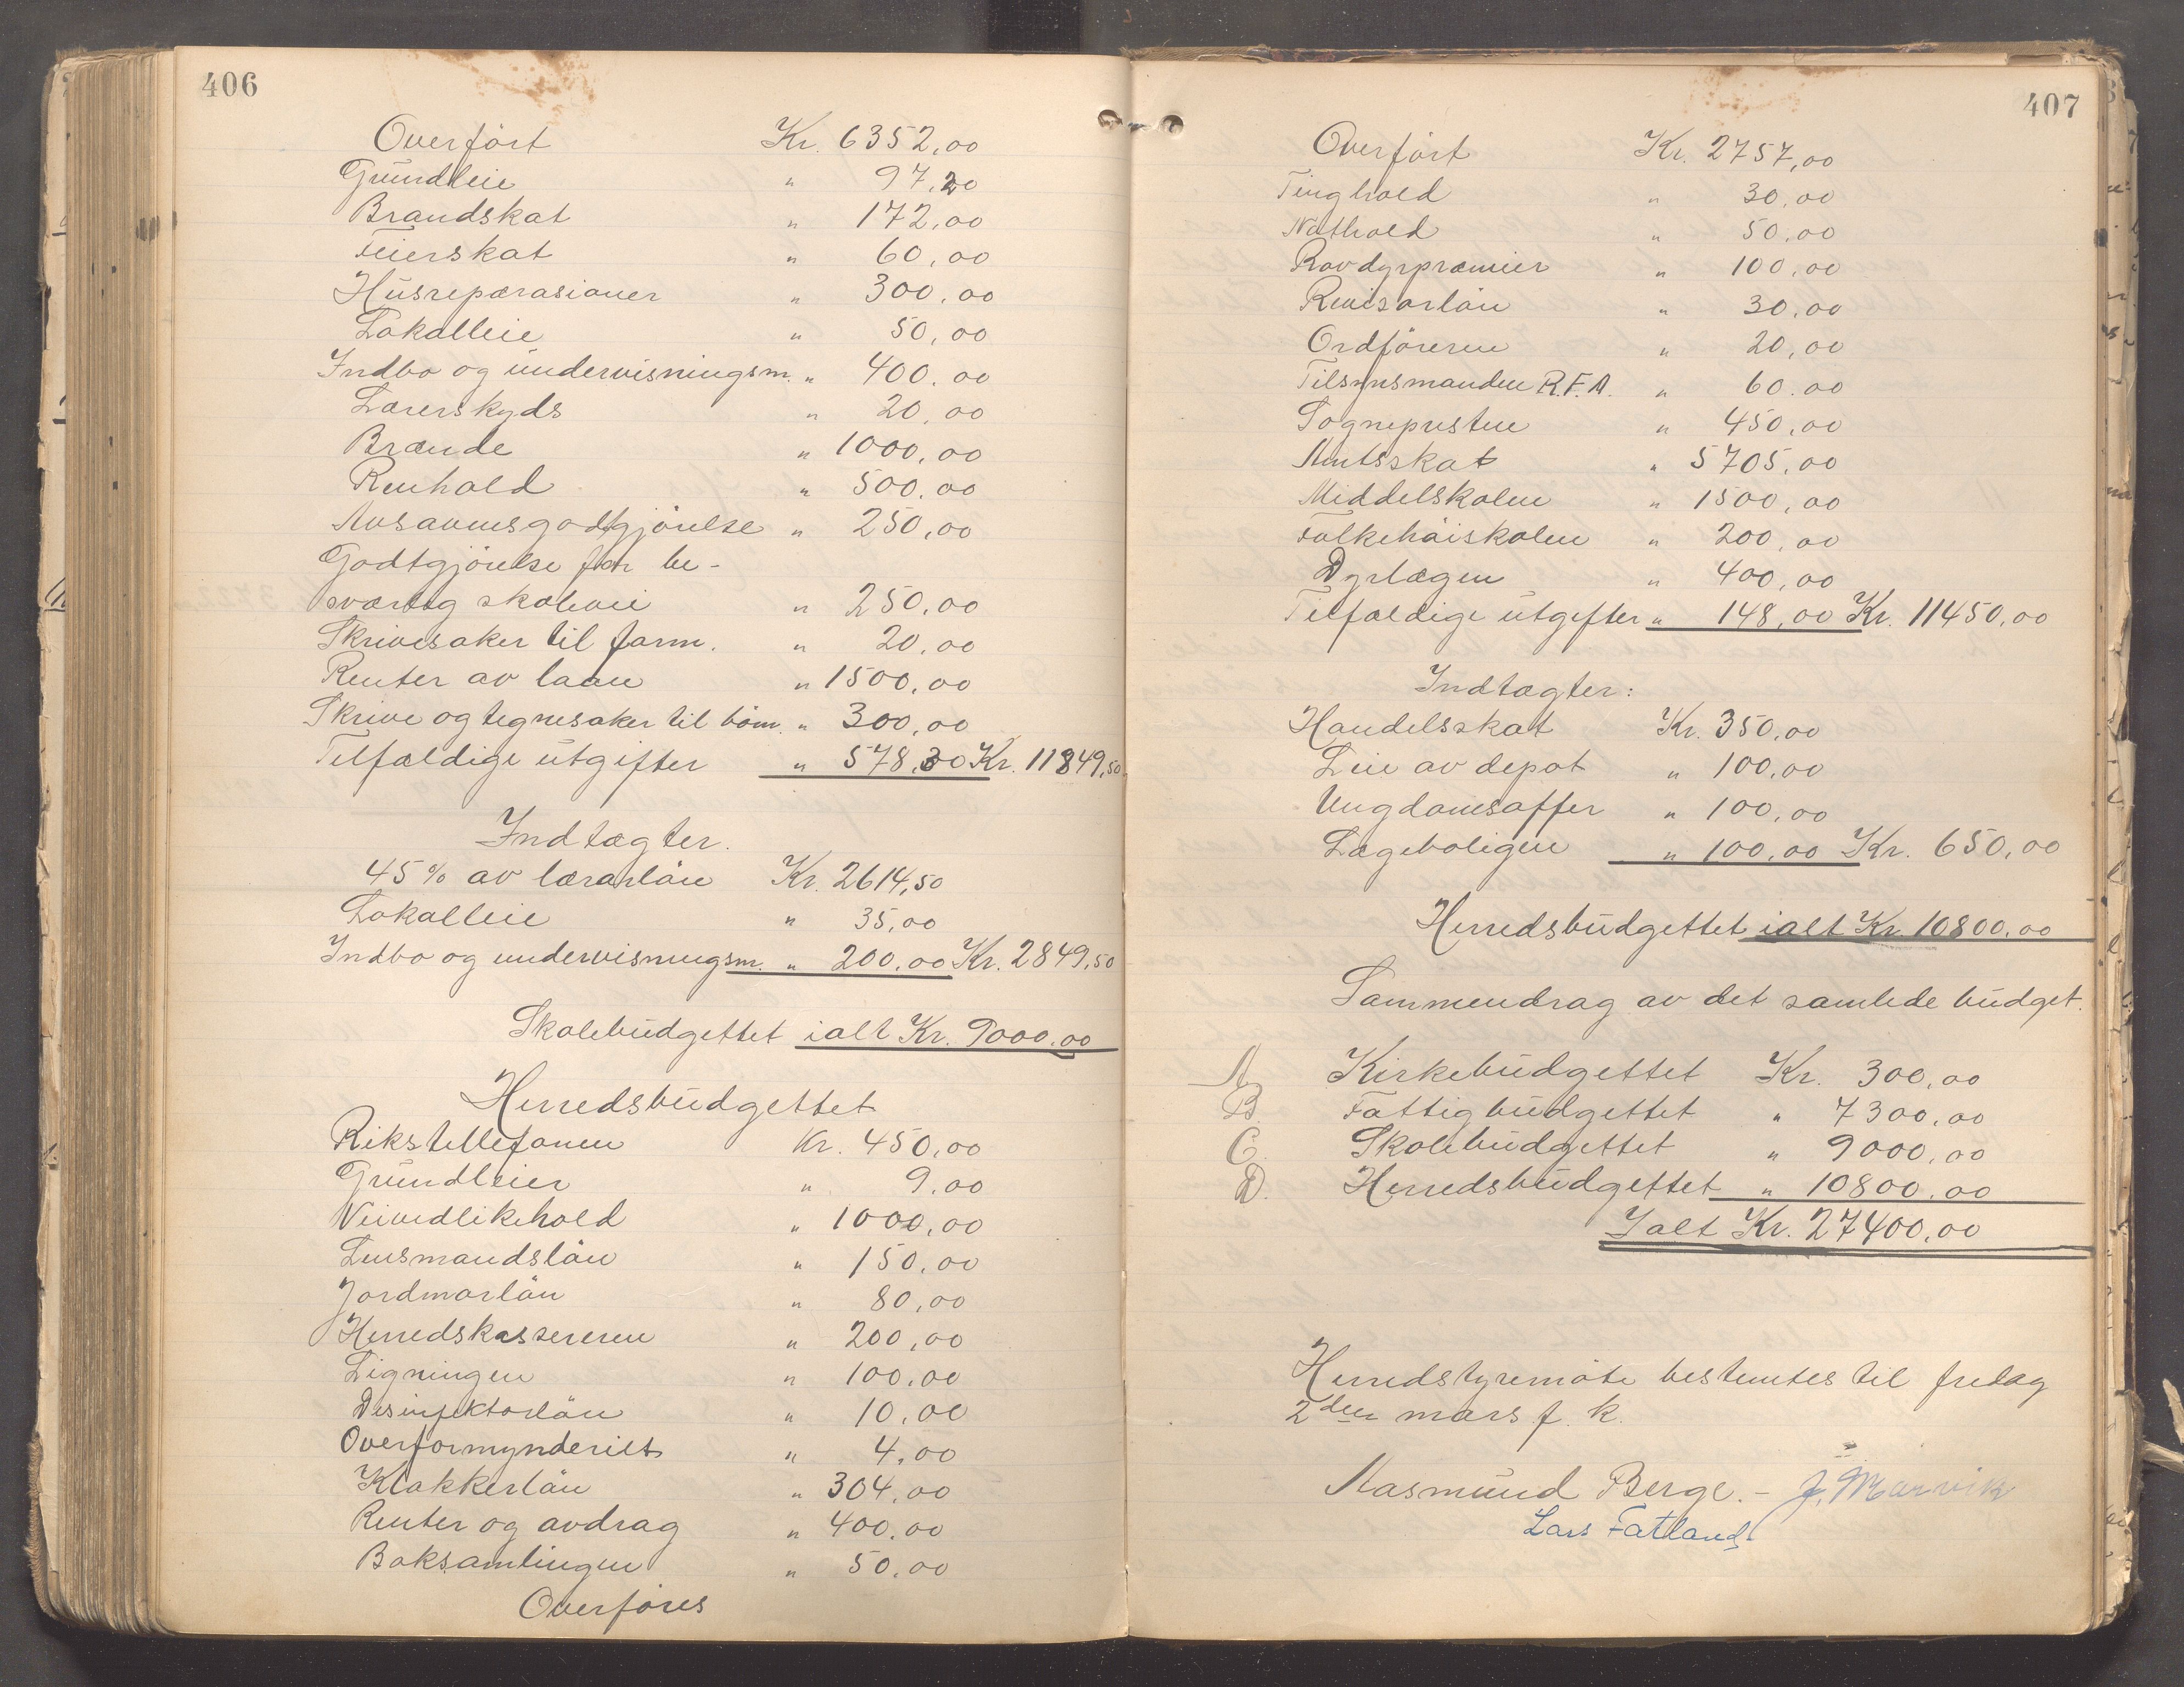 406
Overført Kr. 6352,00
Grundleie " 97,20
Brandskat " 172,00
Feierskat " 60,00
Husreparasioner " 300,00
Lokalleie " 50,00
Indbo og undervisningsm. " 400,00
Lærerskyds " 20,00
Brænde " 1000,00
Renhold " 500,00
Avsavnsgodtgjörelse " 250,00
Godtgjörelse for be-
sværlig skolevei " 250,00
Skrivesaker til form. " 20,00
Renter av laan " 1500,00
Skrive og tegnesaker til börn. " 300,00
Tilfældige utgifter " 578,30 Kr. 11849,50
Indtægter.
45% av lærarlön Kr. 2614,50
Lokalleie " 35,00
Indbo og undervisningsm. " 200,00 Kr. 2849,50
Skolebudgettet ialt Kr. 9000,00
Herredsbudgettet
Rikstellefonen Kr. 450,00
Grundleier " 9,00
Veivedlikehold " 1000,00
Lensmandslön " 150,00
Jordmorlön " 80,00
Herredskassereren " 200,00
Ligningen " 100,00
Desinfektorlön " 10,00
Overformynderiet " 4,00
Klokkerlön " 304,00
Renter og avdrag " 400,00
Boksamlingen " 50,00
Overföres
407
Overfört Kr. 2757,00
Tinghold " 30,00
Nöthold " 50,00
Rovdyrpræmier " 100,00
Revisorlön " 30,00
Ordföreren " 20,00
Tilsynsmanden R.F.A. " 60.00
Sognepresten " 450,00
Amtsskat " 5705,00
Middelskolen " 1500,00
Folkehöiskolen " 200,00
Dyrlægen " 400,00
Tilfældige utgifter " 148,00 Kr. 11450,00
Indtægter:
Handelsskat Kr. 350,00
Leie av depot " 100,00
Ungdomsoffer " 100,00
Lægeboligen " 100,00 Kr. 650,00
Herredsbudgettet ialt Kr. 10800,00
Sammendrag av det samlede budget.
A. Kirkebudgettet Kr. 300,00
B. Fattigbudgettet " 7300,00
C. Skolebudgettet " 9000,00
D. Herredsbudgettet " 10800,00
Ialt Kr. 27400,00
Herredstyremöte bestemtes til fredag
2den mars f. k.
Aasmund Berge. - J. Marvik
Lars Fatland